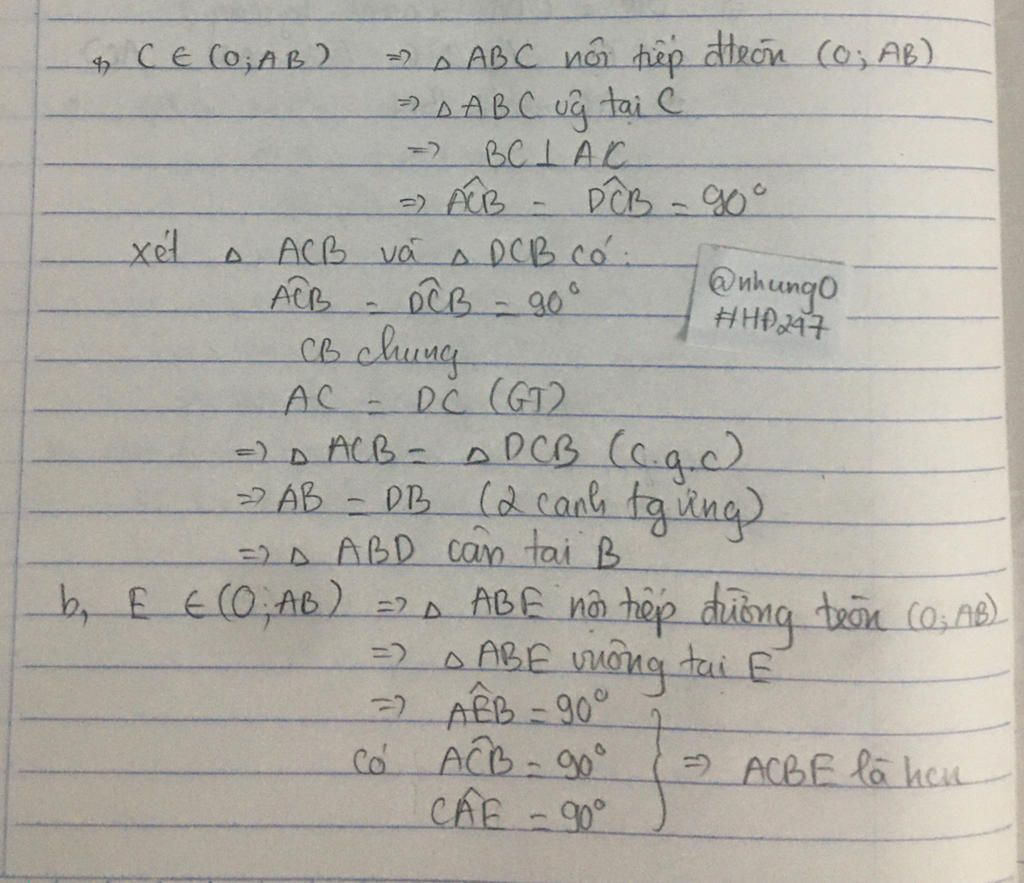 a, C ∈ (O; AB) => △ ABC nội tiếp đtròn (O; AB)
=> △ ABC vg tại C
=> BC ⊥ AC
=> AĈB = DĈB = 90°
xét △ ACB và △ DCB có:
AĈB = DĈB = 90°
CB chung
AC = DC (GT)
=> △ ACB = △ DCB (c.g.c)
=> AB = DB (2 cạnh tg ứng)
=> △ ABD cân tại B
@nhung0
#HĐ247
b, E ∈ (O; AB) => △ ABE nội tiếp đường tròn (O; AB)
=> △ ABE vuông tại E
=> AÊB = 90°
có AĈB = 90°
CÂE = 90°
} => ACBE là hcn